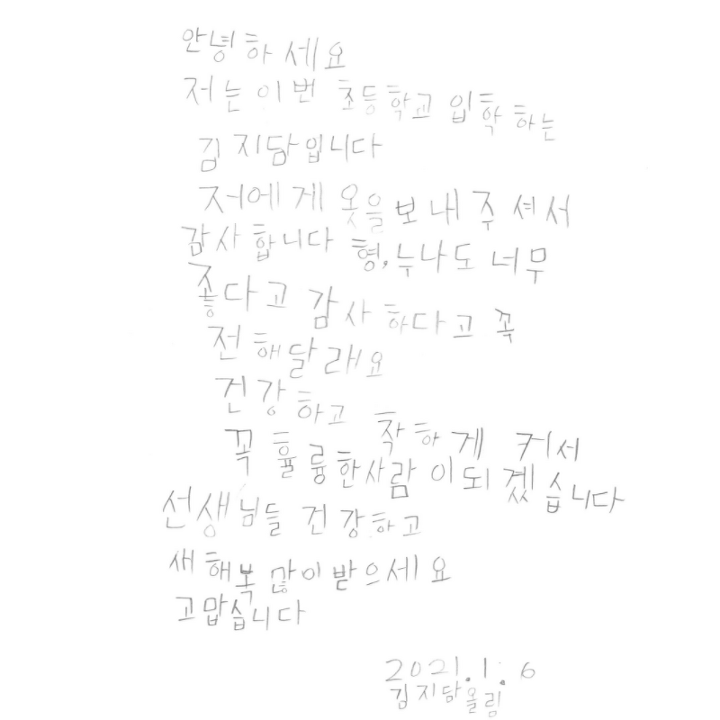 안녕하세요
저는 이번 초등학교 입학하는
김지담입니다
저에게 옷을 보내주셔서
감사합니다 형,누나도 너무
좋다고 감사하다고 꼭
전해달래요
건강하고 착하게 커서
꼭 휼륭한사람이되겠습니다
선생님들 건강하고
새해복 많이받으세요
고맙습니다
2021.1.6
김지담올림